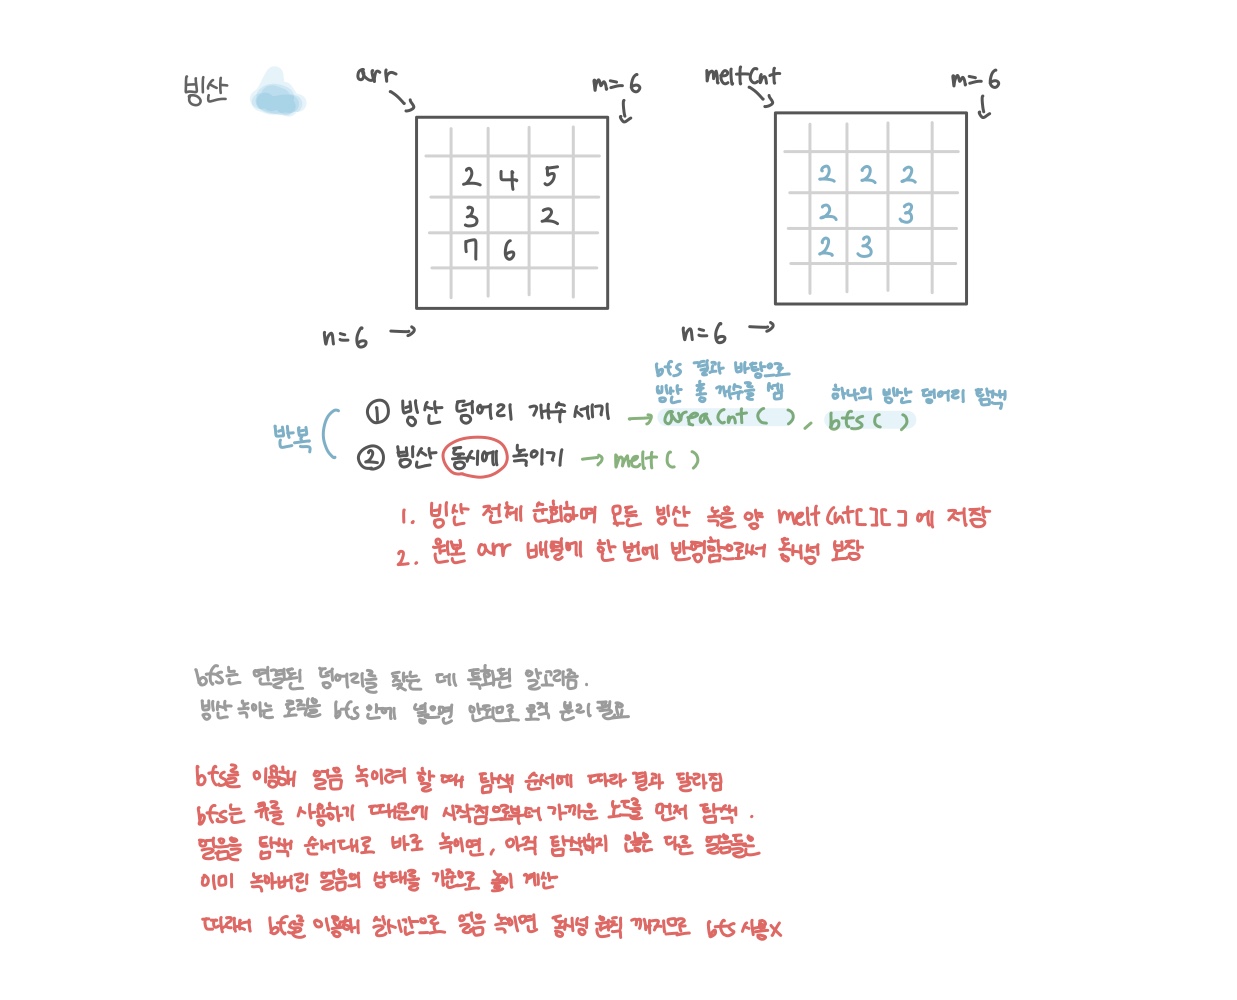 빙산
arr
m=6
2 4 5
3 2
7 6
n=6 →
meltCnt
m=6
2 2 2
2 3
2 3
n=6 →
bfs 결과 바탕으로
빙산 총 개수를 셈
하나의 빙산 덩어리 탐색
반복
① 빙산 덩어리 개수 세기 → areaCnt( ), bfs( )
② 빙산 동시에 녹이기 → melt( )
1. 빙산 전체 순회하며 모든 빙산 녹을 양 meltCnt[][]에 저장
2. 원본 arr 배열에 한 번에 반영함으로서 동시성 보장
bfs는 연결된 덩어리를 찾는 데 특화된 알고리즘.
빙산 녹이는 로직을 bfs 안에 넣으면 안되므로 로직 분리 필요
bfs를 이용해 얼음 녹이려 할 때 탐색 순서에 따라 결과 달라짐
bfs는 큐를 사용하기 때문에 시작점으로부터 가까운 노드를 먼저 탐색.
얼음을 탐색 순서대로 바로 녹이면, 아직 탐색하지 않은 다른 얼음들은
이미 녹아버린 얼음의 상태를 기준으로 높이 계산
따라서 bfs를 이용해 실시간으로 얼음 녹이면 동시성 원칙 깨지므로 bfs 사용x